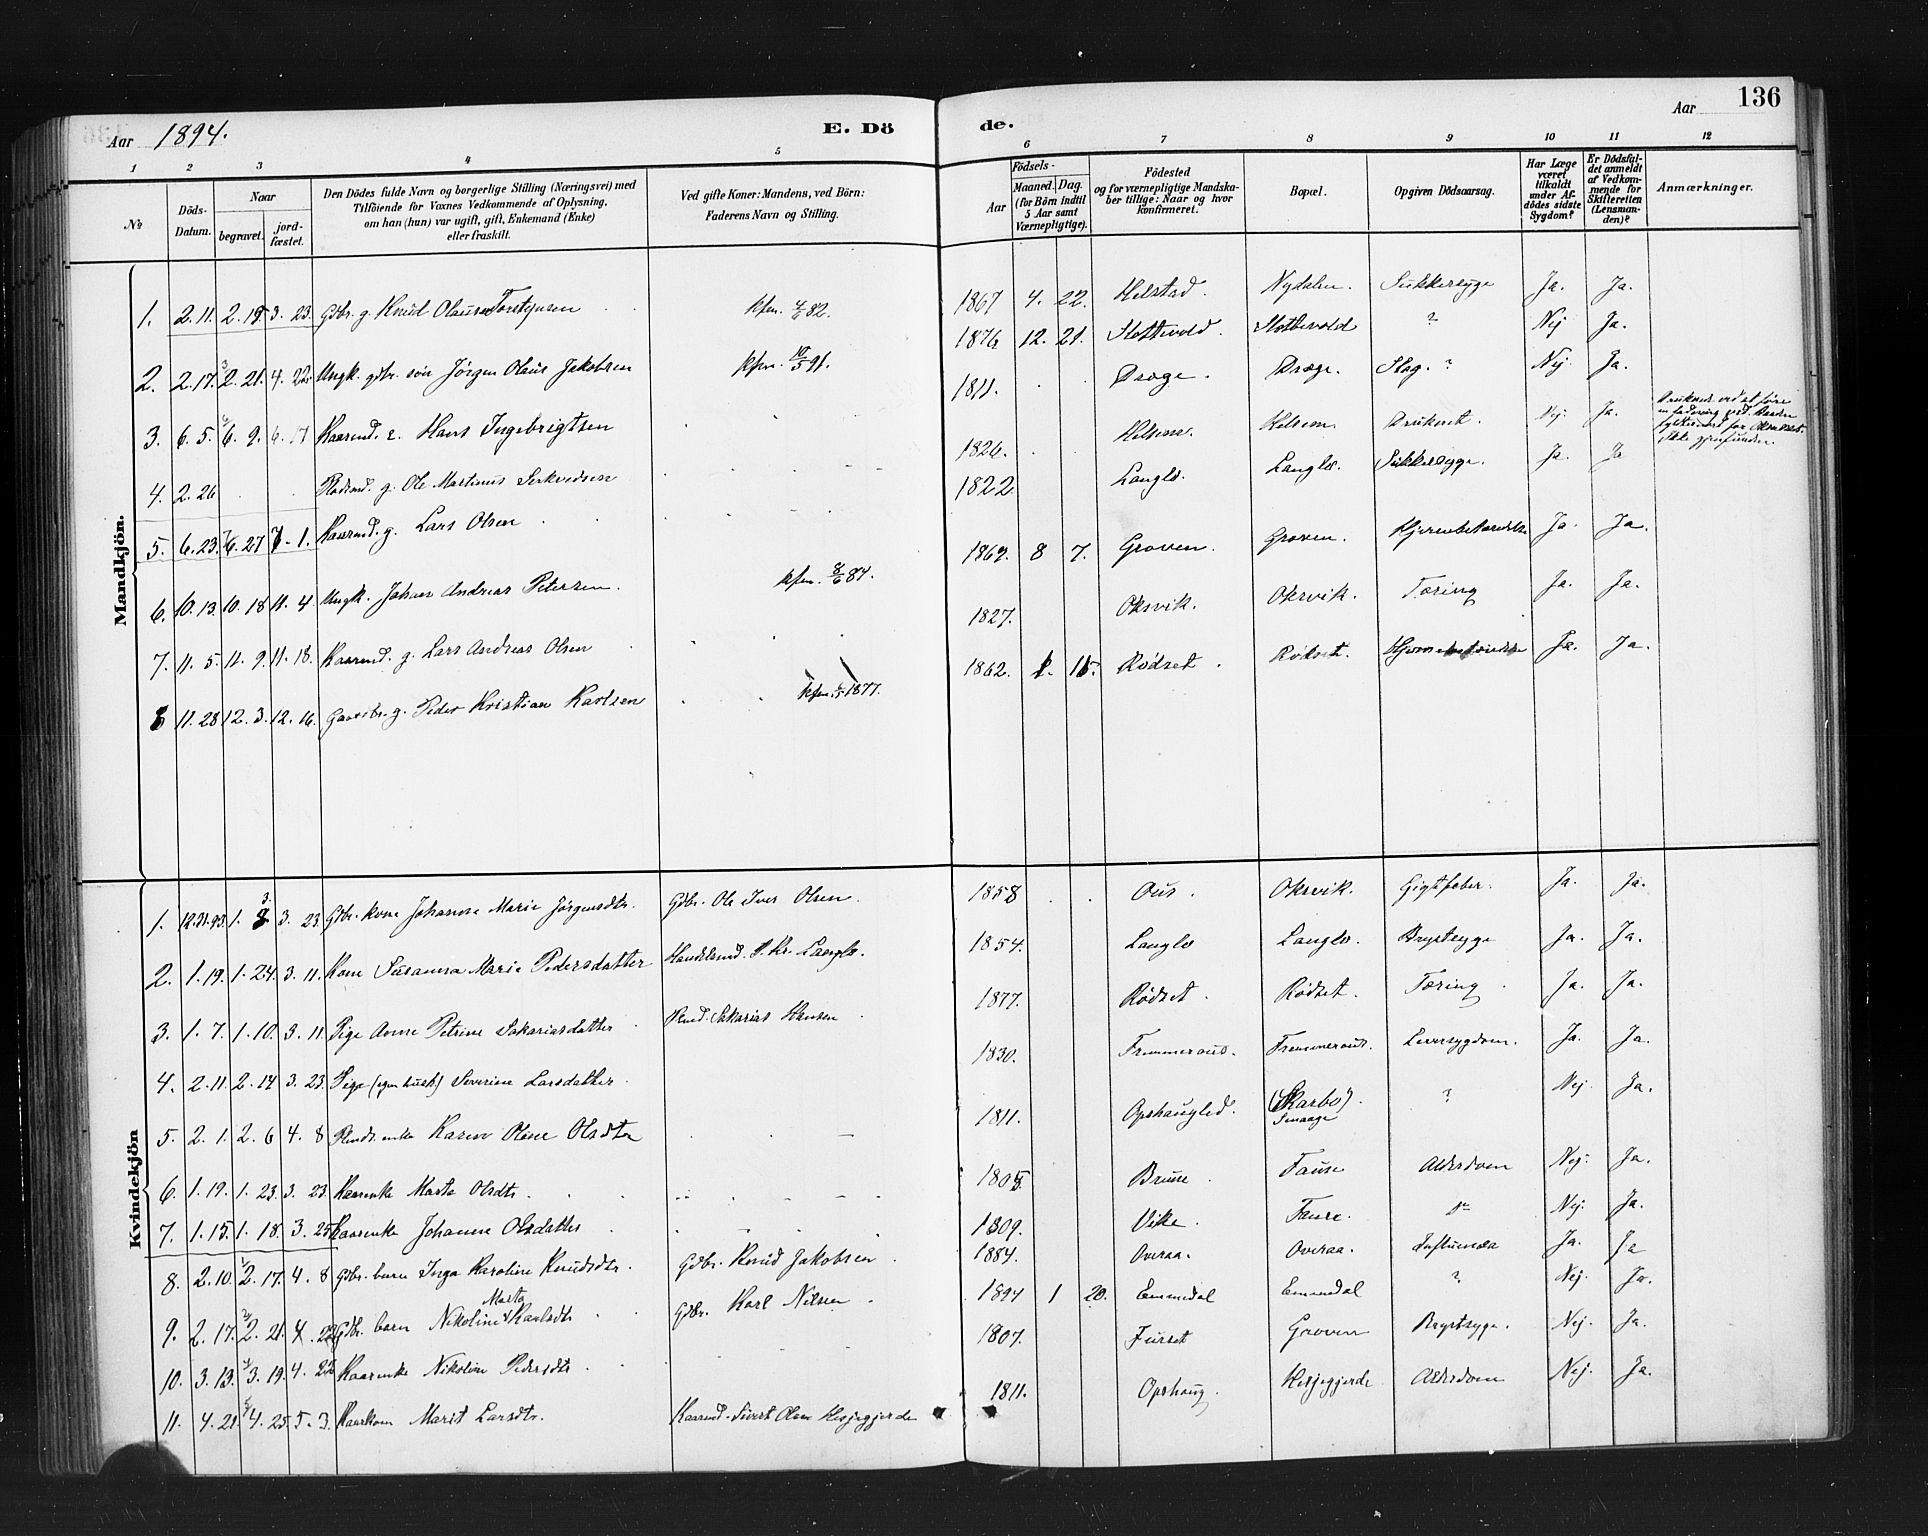 136
Aar 1894.
E. Dö
de.
Aar
1 2 3 4 5 6 7 8 9 10 11 12
No
Döds-Datum.
Naar
begravet.
jord-fæstet.
Den Dödes fulde Navn og borgerlige Stilling (Næringsvei) med
Tilföiende for Voxnes Vedkommende af Oplysning,
om han (hun) var ugift, gift, Enkemand (Enke)
eller fraskilt.
Ved gifte Koner: Mandens, ved Börn:
Faderens Navn og Stilling.
Födsels-
Aar
Maaned. Dag.
(for Börn indtil
5 Aar samt
Værnepligtige).
Födested
og for værnepligtige Mandska-
ber tillige: Naar og hvor
konfirmeret.
Bopæl.
Opgiven Dödsaarsag.
Har Læge
været
tilkaldt
under Af-
dödes sidste
Sygdom?
Er Dödsfal-
det anmeldt
af Vedkom-
mende for
Skifteretten
(Lensman-
den)?
Anmærkninger.
Mandkjön.
1. 2. 11. 2. 19 3. 23. Gdbr. g. Knud Olausen Torstensen kfm. 4/6 82. 1867 4. 22. Helstad. Nydalen. Sukkersyge Ja. Ja.
2. 2. 17. 2. 21. 4. 22. Ungk. gdbr. søn Jørgen Olaus Jakobsen kfm. 10/5 91. 1876 12. 21. Slottevold. Slottevold ? Nej Ja.
3. 6. 5. 6. 9. 6. 17 Kaarmd. e. Hans Ingebrigtsen 1811. Drage. Drage. Slag. ? Nej Ja.
4. 2. 26 Pladsmd. g. Ole Martinus 1826. Helsem. Helsem. Druknet. Nej. Ja.
5. 6. 23. 6. 27 7. 1. Kaarmd. g. Lars Olsen 1822 Langlo. Langlo. Sukkersyge. Ja. Ja
6. 10. 13. 10. 18 11. 4. Ungk. Johan Andreas Petersen. kfm. 8/6 84. 1869. 8 7. Groven. Groven. Ja. Ja.
7. 11. 5. 11. 9. 11. 18. Kaarmd. g. Lars Andreas Olsen 1827. Oksvik. Oksvik. Tæring Ja. Ja.
8 11. 28 12. 3. 12. 16. Gaardbr. g. Peder Kristian Karlsen kfm. 1877. 1862. 1. 15. Rødset. Rødset. Ja. Ja.
Kvindekjön
1. 12. 31. 93. 1. 8 3. 23 Gdbr. kone Johanne Marie Jørgensdtr. Gdbr. Ole Iver Olsen. 1858 Ous. Oksvik. Gigtfeber. Ja. Ja.
2. 1. 19. 1. 24. 3. 11. Kone Susanna Marie Pedersdatter Handelsmd. P. Kr. Langlo. 1854. Langlo Langlo. Brystsyge Ja. Ja.
3. 1. 7. 1. 10. 3. 11. Pige Anne Petrine Sakariasdatter Plmd. Sakarias Hansen 1877. Rødset. Rødset. Tæring. Ja. Ja.
4. 2. 11. 2. 14 3. 23. Pige (egen hush.) Severine Larsdatter 1830. Fremmeraus. Fremmeraus. Leversygdom. Ja. Ja.
5. 2. 1. 2. 6 4. 8 Karen Oline Olsdtr 1811. Opshaugled. (Skarbø). Smaage ? Nej Ja.
6. 1. 19. 1. 23. 3. 23. Kaarenke Marta Olsdtr. 1805. Bruse. Fause Alderdom Nej. Ja.
7. 1. 15. 1. 18. 3. 25 Kaarenke Johanne Olsdatter 1809. Vike. Fause. do Nej. Ja.
8. 2. 10. 2. 17. 4. 8 Gdbr. barn Inga Karoline Knudsdtr. Gdbr. Knud Jakobsen 1884. Overaa. Overaa. Influenza Ja. Ja
9. 2. 17. 2. 21. 4. 22 Gdbr. barn Nikoline Marta Karlsdtr. Gdbr. Karl Nilsen 1894 1 20. Emmedal Emmedal ? Nej. Ja.
10. 3. 13. 3. 19. 4. 22 Kaarenke Nikoline Pedersdtr 1807. Furset Groven Brystsyge. Nej. Ja.
11. 4. 21. 4. 25. 5. 3. Kaarkone Marit Larsdtr. Kaarmd. Sivert Olsen Hesjegjerde 1811. Opshaug. Hesjegjerde Alderdom Nej. Ja.